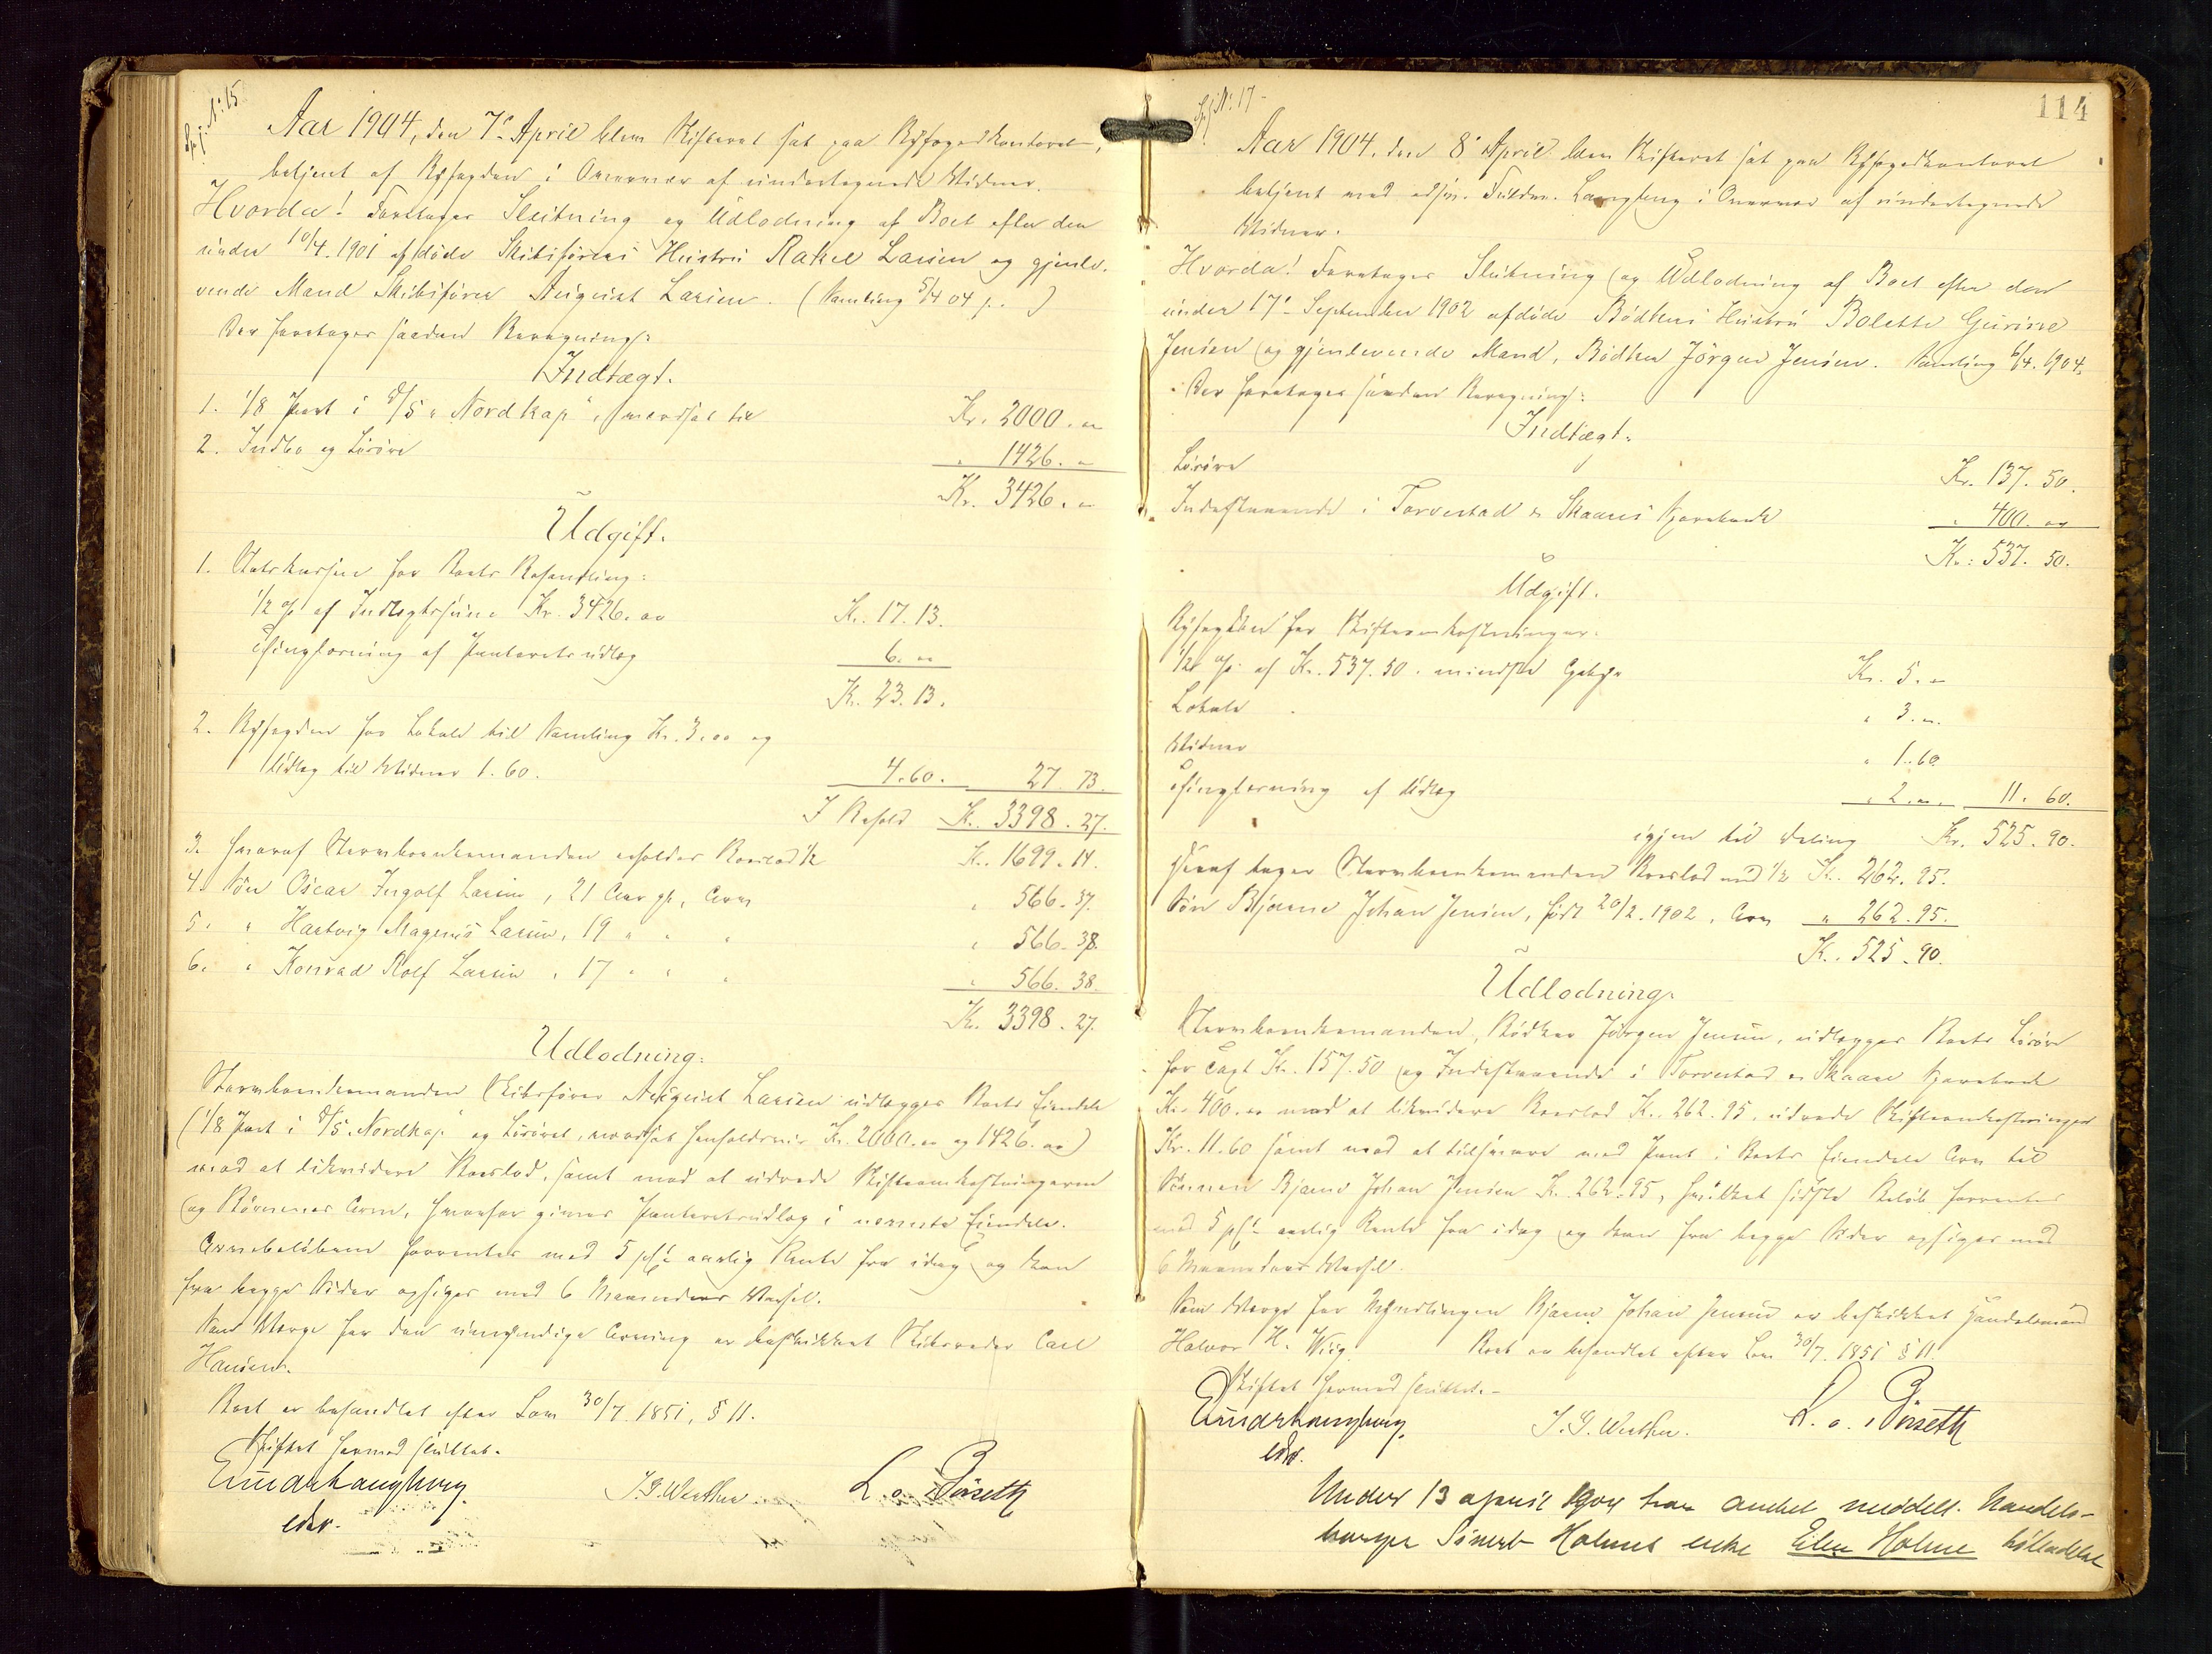 Spj. No: 15
Aar 1904, den 7' April blev Skifteret sat paa Byfogedkontoret,
betjent af Byfogden i Overvær af undertegnede Vidner.
Hvorda! Foretoges Slutning og Udlodning af Boet efter den
under 10/4. 1901 afdøde Skibsførers Hustru Rakel Larsen og gjenle-
vende Mand Skibsfører August Larsen. (Samling 5/4 04 )
Der foretoges saadan Beregning:
Indtægt.
1. 1/8 Part i D/S "Nordkap", værdsat til Kr. 2000. "
2. Indbo og Løsøre " 1426. "
Kr. 3426. "
Udgift.
1. Statskassen for Boets Behandling:
1/2 % af Indtægtssum Kr. 3426.00 Kr. 17.13.
Thinglæsning af Panteretsudlæg 6. "
Kr. 23.13.
2. Byfogden for Lokale til Samling Kr. 3.00 og
Udlæg til Vidner 1.60. 4.60. 27.73.
I Behold Kr. 3398.27.
3. Hvoraf Stervboenkemanden erholder Boeslod 1/2 Kr. 1699.14.
4. Søn Oscar Ingolf Larsen, 21 Aar gl., Arv " 566.37.
5. " Hartvig Magnus Larsen, 19 " " " " 566.38.
6. " Konrad Rolf Larsen, 17 " " " " 566.38.
Kr. 3398.27.
Udlodning:
Stervboenkemanden Skibsfører August Larsen udlægges Boets Eiendele
(1/8 Part i D/S "Nordkap" og Løsøret, værdsat henholdsvis Kr. 2000.00 og 1426.00)
mod at likvidere Boeslod, samt mod at udrede Skifteomkostningerne
og Børnenes Arv, hvorfor gives Panteretsudlæg i nævnte Eiendele.
Arvebeløbene forrentes med 5 pCt. aarlig Rente fra idag og kan
fra begge Sider opsiges med 6 Maaneders Varsel.
Som Værge for den umyndige Arving er beskikket Skibsreder Carl
Hansen.
Boet er behandlet efter Lov 30/7 1851, § 11.
Skiftet hermed sluttet.
Einar Langberg
edsv.
J. G. Werther
L. o. Børseth
Spj No: 17
114
Aar 1904, den 8' April blev Skifteret sat paa Byfogedkontoret
betjent ved edsv. Fuldm. Langberg i Overvær af undertegnede
Vidner.
Hvorda! Foretoges Slutning og Udlodning af Boet efter den
under 17' September 1902 afdøde Bødkers Hustru Bolette Gurine
Jensen og gjenlevende Mand, Bødker Jørgen Jensen. Samling 6/4. 1904.
Der foretoges saadan Beregning:
Indtægt.
Løsøre Kr. 137.50.
Indestaaende i Torvestad & Skaares Sparebank " 400.00
Kr. 537.50.
Udgift.
Byfogden for Skifteomkostninger:
1/2 % af Kr. 537.50. mindste Gebyr Kr. 5. "
Lokale " 3. "
Vidner " 1.60
Thinglæsning af Udlæg " 2. " 11.60.
igjen til Deling Kr. 525.90.
Heraf tager Stervboenkemanden Boeslod med 1/2 Kr. 262.95.
Søn Bjarne Johan Jensen, født 20/2. 1902, Arv " 262.95.
Kr. 525.90.
Udlodning.
Stervboenkemanden, Bødker Jørgen Jensen, udlægges Boets Løsøre
for Taxt Kr. 157.50 og Indestaaende i Torvestad & Skaare Sparebank
Kr. 400.00 mod at likvidere Boeslod Kr. 262.95, udrede Skifteomkostninger
Kr. 11.60 samt mod at tilsvare med Pant i Boets Eiendele Arv til
Sønnen Bjarne Johan Jensen Kr. 262.95, hvilket sidste Beløb forrentes
med 5 pCt. aarlig Rente fra idag og kan fra begge Sider opsiges med
6 Maaneders Varsel.
Som Værge for Myndlingen Bjarne Johan Jensen er beskikket Handelsmand
Halvor H. Wiig. Boet er behandlet efter Lov 30/7. 1851 § 11.
Skiftet hermed sluttet.
Einar Langberg
edsv.
J. G. Werther.
L. o. Børseth
Under 13 april 1904 har amtet meddelt Handels-
borger Sivert Holmes enke Elen Holme tilladelse